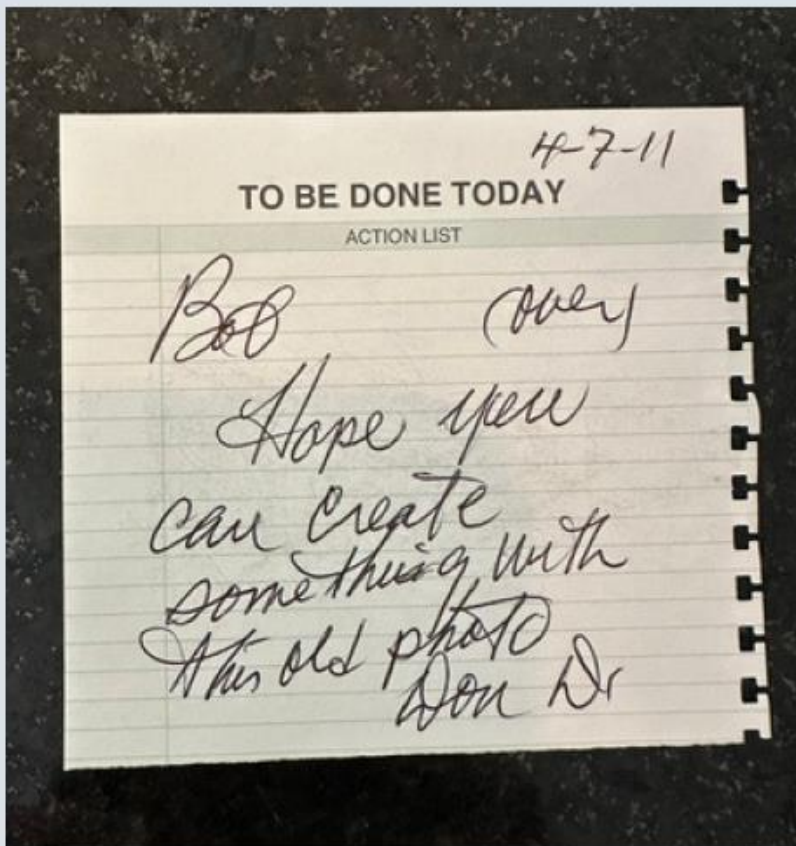 4-7-11
TO BE DONE TODAY
ACTION LIST
Bob (over)
Hope you
can create
something with
this old photo
Don Dr